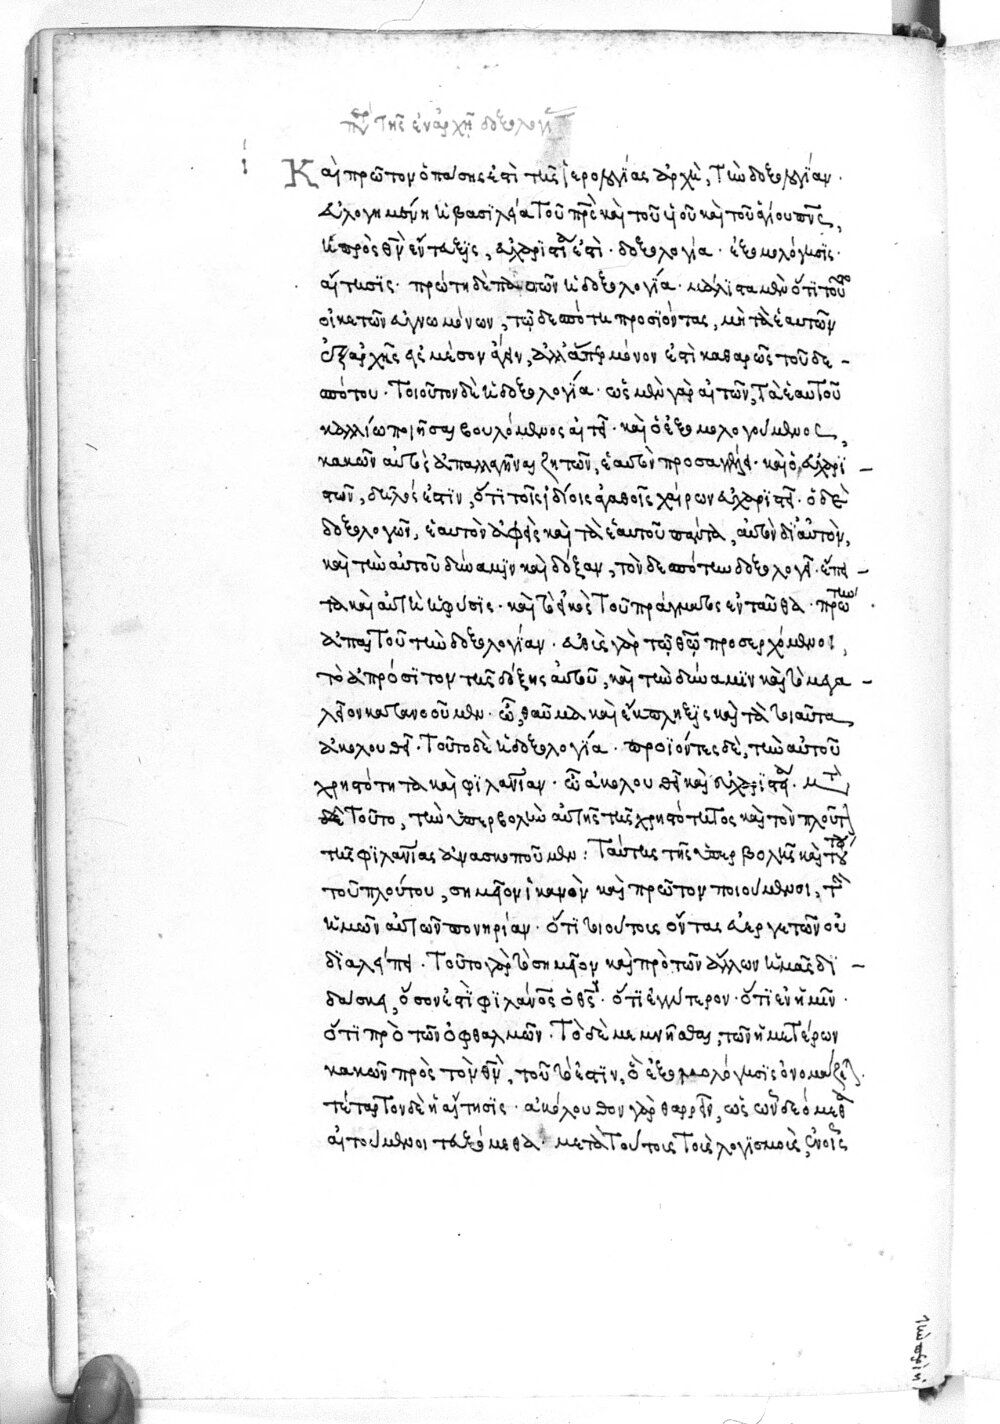 περὶ τῆς ἐν ἀρχῇ δοξολογίας
Καὶ πρῶτον ὁ πάσης ἐστὶ τῆς ἱερολογίας ἀρχὴ, τὴν δοξολογίαν·
εὐλογημένη ἡ βασιλεία τοῦ πρς καὶ τοῦ υἱοῦ καὶ τοῦ ἁγίου πνς,
ἡ πρὸς θν ἔντευξις, εὐχαριστία ἐστὶ· δοξολογία· ἐξομολόγησις·
αἴτησις· πρώτη δὲ πασῶν ἡ δοξολογία· μάλιστα μὲν ὅτι τοῦτο
οἰκετῶν εὐγνωμόνων, τῷ δεσπότη προσϊόντας, μὴ τὰ ἑαυτῶν
ἐξαρχῆς εἰς μέσον ἄγειν, ἀλλ' ἅπερ μόνον ἐστὶ καθαρῶς τοῦ δε
σπότου· τοιοῦτον δὲ ἡ δοξολογία· ὡς μὲν γὰρ αἰτῶν, τὰ ἑαυτοῦ
καλλίω ποιῆσαι βουλόμενος αἰτεῖ· καὶ ὁ ἐξομολογούμενος,
κακῶν αὐτὸς ἀπαλλαγῆναι ζητῶν, ἑαυτὸν προσαγγέλλει· καὶ ὁ εὐχαρι
στῶν, δῆλός ἐστιν, ὅτι τοῖς ἰδίοις ἀγαθοῖς χαίρων εὐχαριστεῖ· ὁ δὲ
δοξολογῶν, ἑαυτὸν ἀφεὶς καὶ τὰ ἑαυτοῦ πάντα, αὐτὸν δι' αὐτὸν,
καὶ τὴν αὐτοῦ δύναμιν καὶ δόξαν, τὸν δεσπότην δοξολογεῖ· ἔπει
τα καὶ αὐτὴ ἡ φύσις· καὶ τὸ εἰκὸς τοῦ πράγματος ἐνταῦθα· πρώτην
ἀπαιτοῦ τὴν δοξολογίαν· εὐθὺς γὰρ τῷ θεῷ προσερχόμενοι,
τὸ ἀπρόσιτον τῆς δόξης αὐτοῦ, καὶ τὴν δύναμιν καὶ τὸ μεγα
λεῖον κατανοοῦμεν· ᾧ, θαῦμα καὶ ἔκπληξις καὶ τὰ τοιαῦτα
ἀκολουθεῖ· τοῦτο δὲ ἡ δοξολογία· προϊόντες δὲ, τὴν αὐτοῦ
χρηστότητα καὶ φιλανίαν· ᾧ ἀκολουθεῖ καὶ εὐχαριστία· μετὰ
δὲ τοῦτο, τὴν ὑπερβολὴν αὐτῆς τῆς χρηστότητος καὶ τὸν πλοῦτον
τῆς φιλανίας ἀνασκοποῦμεν: ταύτης τῆς ὑπερβολῆς καὶ τούτου
τοῦ πλούτου, σημεῖον ἱκανὸν καὶ πρῶτον ποιούμενοι, τὴν
ἡμῶν αὐτῶν πονηρίαν· ὅτι τοιούτους ὄντας εὐεργετῶν οὐ
διαλείπει· τοῦτο γὰρ τὸ σημεῖον καὶ πρὸ τῶν ἄλλων ἡμᾶς δι
δάσκει, ὅσον ἐστὶ φιλάνος ὁ θς· ὅτι ἐγγύτερον· ὅτι ἐν ἡμῖν·
ὅτι πρὸ τῶν ὀφθαλμῶν· τὸ δὲ μεμνῆσθαι, τῶν ἡμετέρων
κακῶν πρὸς τὸν θν, τοῦτό ἐστιν, ὃ ἐξομολόγησις ὀνομάζεται.
τέταρτον δὲ ἡ αἴτησις· ἀκόλουθον γὰρ θαρρεῖν, ὡς ὧν δεόμεθα
αἰτούμενοι τευξόμεθα· μετὰ τούτοις τοῖς λογισμοῖς, ἐν οἷς